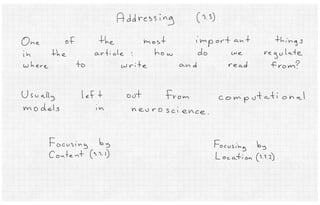 Addressing (3.3)
One of the most important things
in the article : how do we regulate
where to write and read from?
Usually left out from computational
models in neuroscience.
Focusing by
Content (3.3.1)
Focusing by
Location (3.3.2)